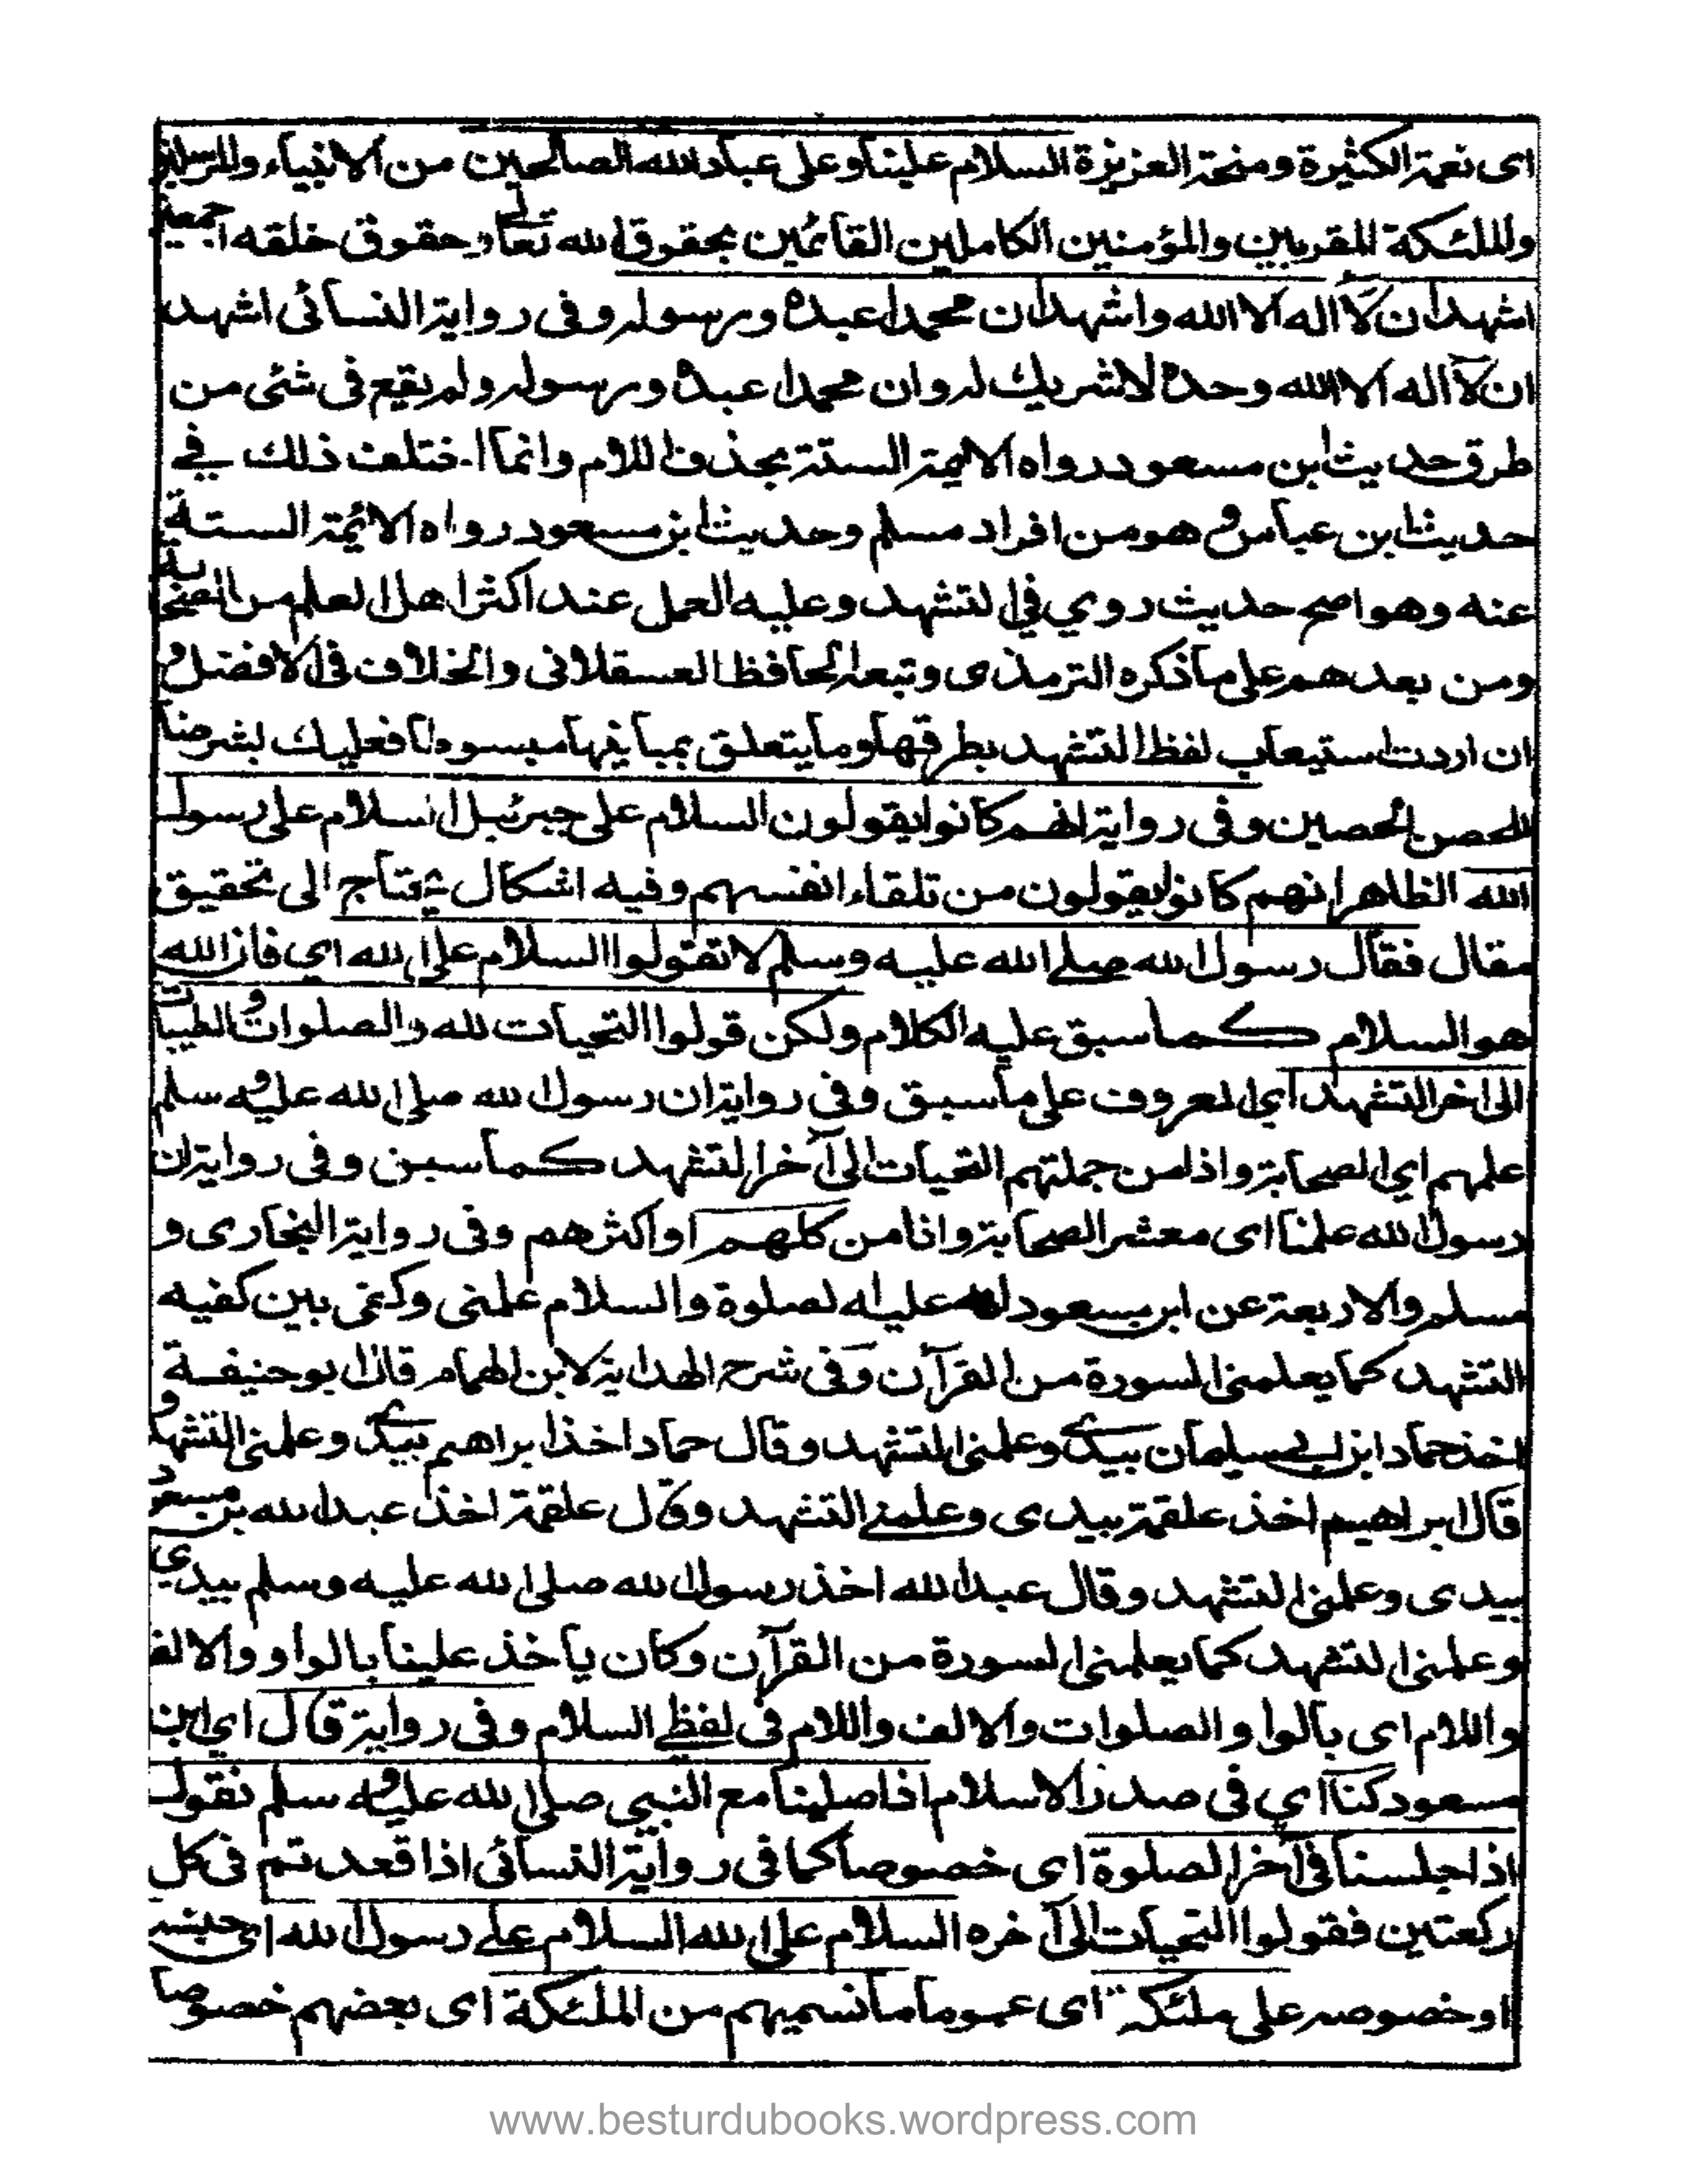 اى نعمتہ الكثيرة ومنحتہ العزيزة السلام علينا وعلى عباد الله الصالحين من الانبياء والمرسلين
والملئكة المقربين والمؤمنين الكاملين القائمين بحقوق الله تعالى وحقوق خلقه اجمعين
اشهد ان لا اله الا الله واشهد ان محمدا عبده ورسولہ وفى روايۃ النسائى اشهد
ان لا اله الا الله وحده لا شريك لہ وان محمدا عبده ورسولہ ولم يقع فى شئى من
طرق حديث ابن مسعود رواه الايمۃ الستۃ بحذف اللام وانما اختلف ذلك في
حديث ابن عباس و هو من افراد مسلم وحديث ابن مسعود رواه الائمۃ الستة
عنه وهو اصح حديث روي في التشهد وعليه العمل عند اكثر اهل العلم من الصحابة
ومن بعدهم على ما ذكره الترمذى وتبعہ الحافظ العسقلانى والخلاف فى الافضل و
ان اردت استيعاب لفظ التشهد بطرقها وما يتعلق بمبانيها مبسوطا فعليك بشرحنا
للحصن الحصين وفى روايۃ انهم كانوا يقولون السلام على جبرئيل السلام على رسول
الله الظاهر انهم كانوا يقولون من تلقاء انفسهم وفيه اشكال يحتاج الى تحقيق
مقال فقال رسول الله صلے الله عليه وسلم لا تقولوا السلام على الله اي فان الله
هو السلام كما سبق عليه الكلام ولكن قولوا التحيات لله والصلوات والطيبات
الى اخر التشهد اي المعروف على ما سبق وفى روايۃ ان رسول الله صلى الله عليه وسلم
علمهم اي الصحابۃ واذا من جملتهم التحيات الى آخر التشهد كما سبق وفى روايۃ ان
رسول الله علمنا اى معشر الصحابۃ وانا من كلهم او اكثرهم وفى روايۃ البخارى و
مسلم والاربعۃ عن ابن مسعود عليه الصلوة والسلام علمنى وكفى بين كفيه
التشهد كما يعلمنى السورة من القرآن وفى شرح الهدايۃ لابن الهمام قال ابو حنيفة
اخذ حماد ابن ابى سليمان بيدي وعلمنى التشهد وقال حماد اخذ ابراهيم بيدي وعلمنى التشهد و
قال ابراهيم اخذ علقمۃ بيدى وعلمنے التشهد وقال علقمۃ اخذ عبد الله بن مسعود
بيدى وعلمنى التشهد وقال عبد الله اخذ رسول الله صلى الله عليه وسلم بيدي
وعلمنى التشهد كما يعلمنى السورة من القرآن وكان يأخذ علينا بالواو والالف
واللام اى بالوا و الصلوات والالف واللام فى لفظ السلام وفى روايۃ قال اي ابن
مسعود كنا اي فى صدر الاسلام اذا صلينا مع النبي صلى الله عليه وسلم نقول
اذا جلسنا فى آخر الصلوة اى خصوصا كما فى روايۃ النسائى اذا قعدتم فى كل
ركعتين فقولوا التحيات الى آخره السلام على الله السلام علے رسول الله اى جنسہ
او خصوصہ على ملئكۃ اى عموما ما نسميهم من الملئكة اى بعضهم خصوصا
www.besturdubooks.wordpress.com